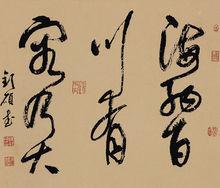 海納百
川有
容乃大